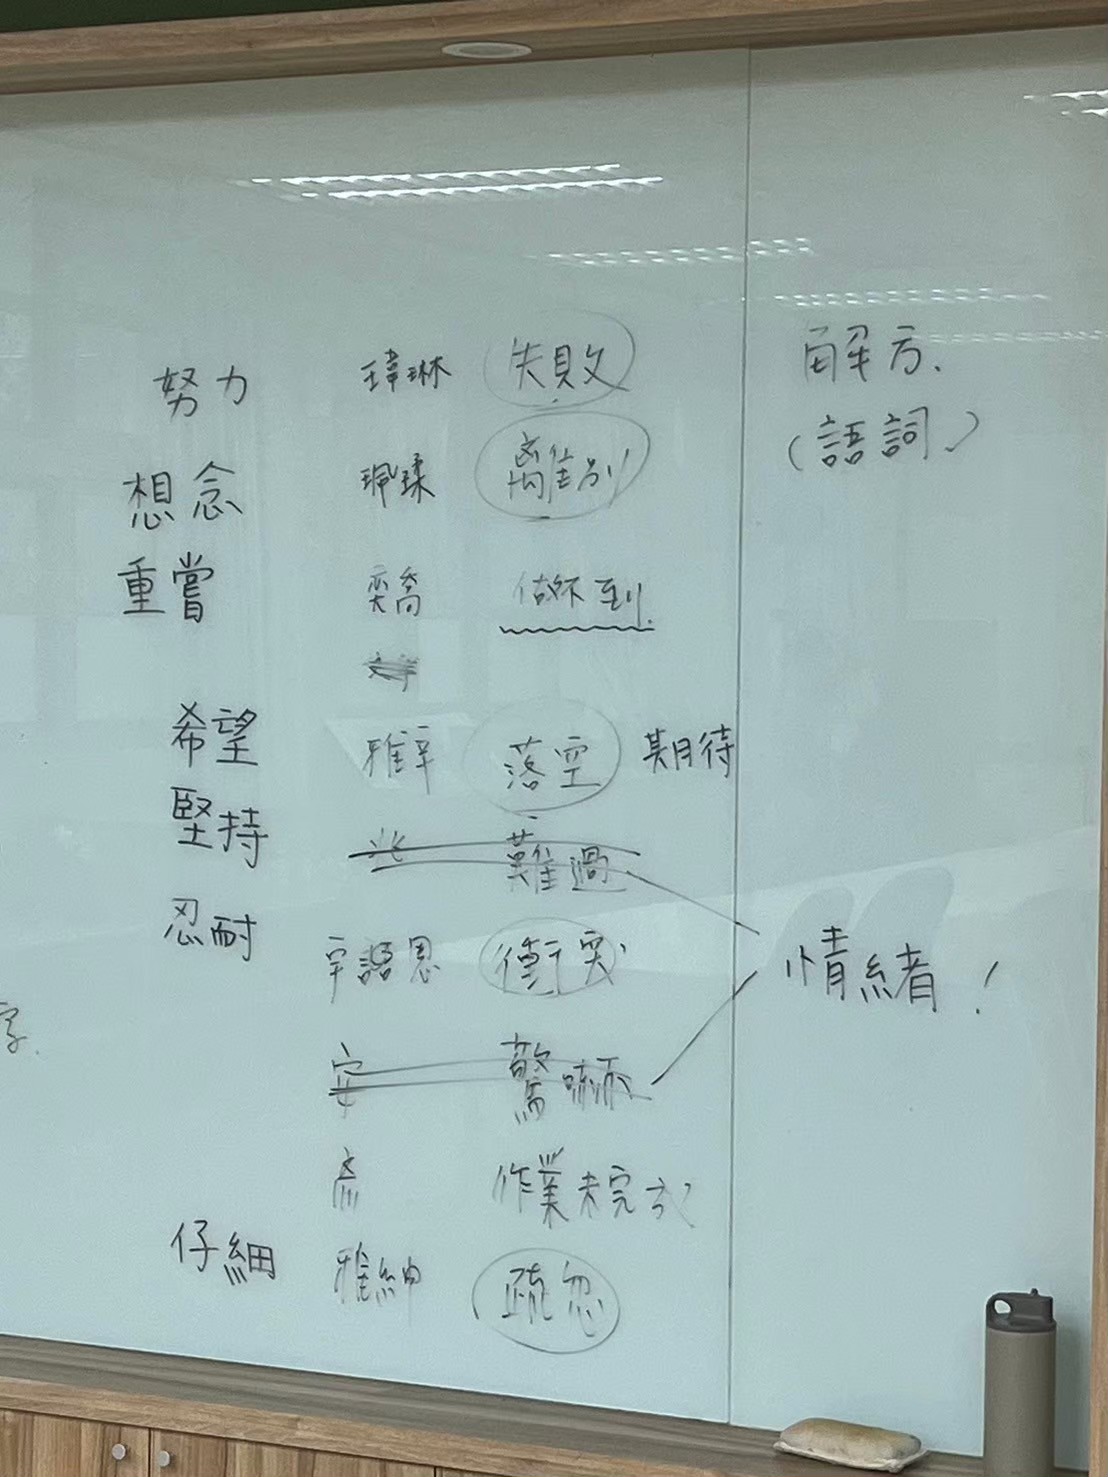 努力 瑋琳 失敗 解方、
（語詞）
想念 珮瑈 離別
重嘗 奕喬 做不到
希望 雅宰 落空 期待
堅持
兆 難過
忍耐 宇語恩 衝突 情緒！
字
安 驚嚇
作業未完成
仔細 雅紳 疏忽